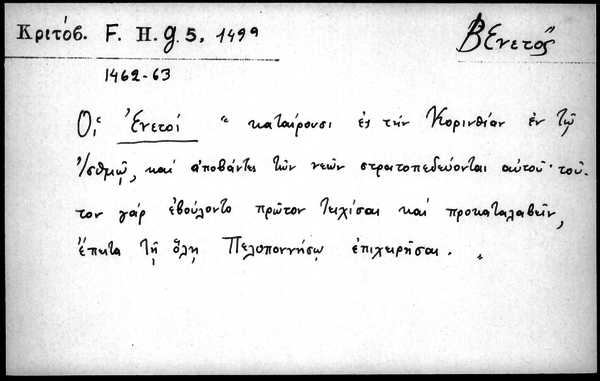 Κριτόβ. F. H. g. 5, 1499
Βενετός
1462-63
Οἱ Ἐνετοί " καταίρουσι ἐς τὴν Κορινθίαν ἐν τῷ
Ἰσθμῷ, καὶ ἀποβάντες τῶν νεῶν στρατοπεδεύονται αὐτοῦ· τοῦ-
τον γάρ ἐβούλοντο πρῶτον τειχίσαι καὶ προκαταλαβεῖν,
ἔπειτα τῇ ὅλῃ Πελοποννήσῳ ἐπιχειρῆσαι. "